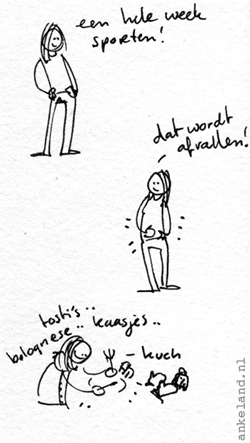 een hele week
sporten!
dat wordt
afvallen!
tosti's..
bolognese.. kaasjes..
- kuch
ankeland.nl